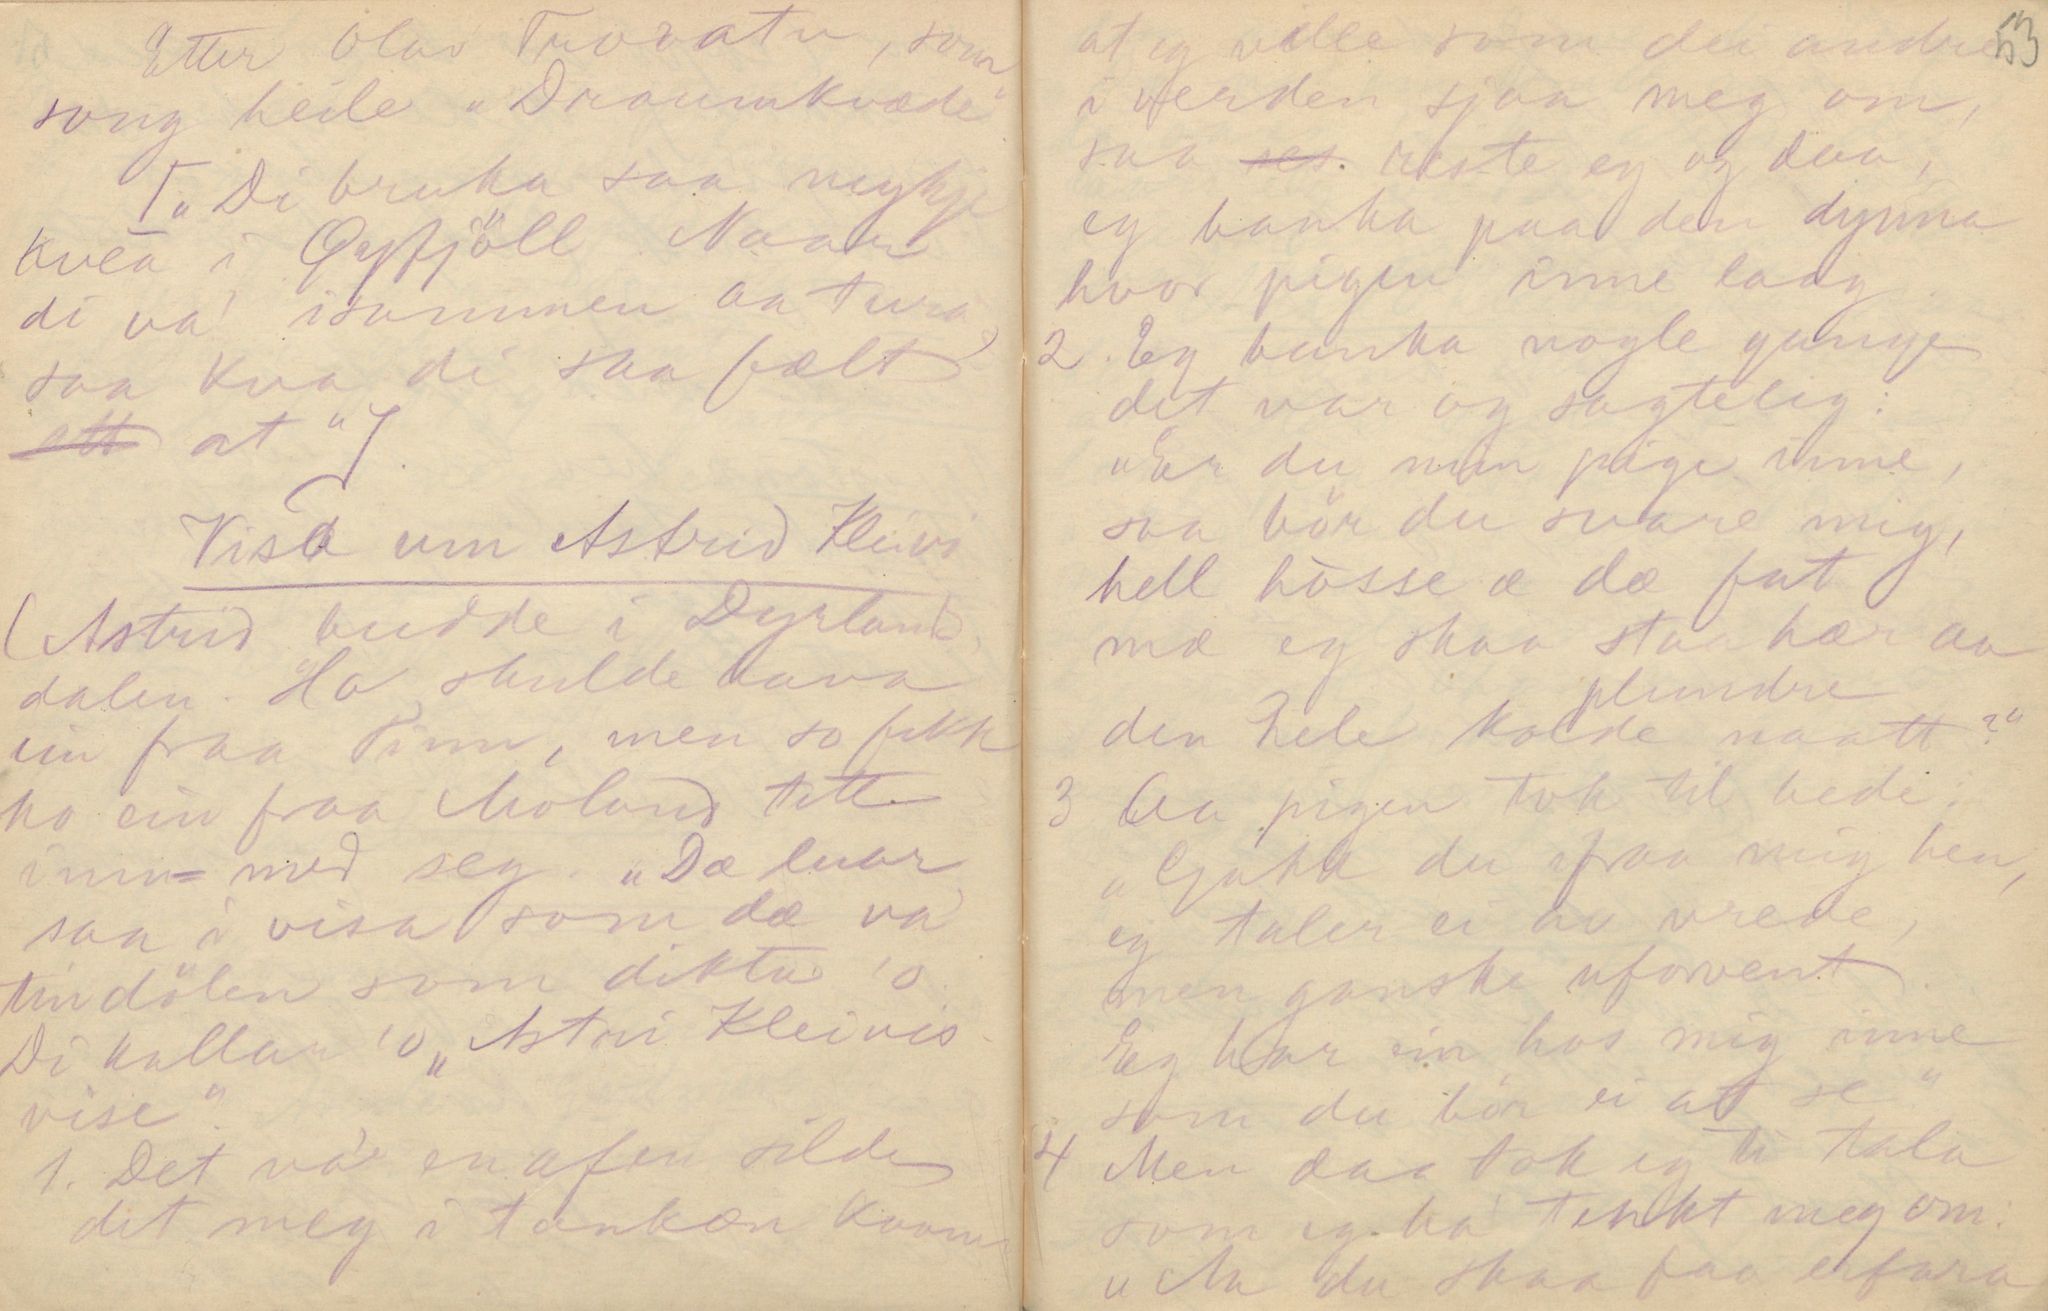 Etter Olav Trovatn, som
song heile „Draumkvæde"
[„Di bruka saa mykje
kvea i Øyfjöll. Naar
di va' isammen aa tura
saa kva di saa fælt
att at"].
Visa um Astrid Kleivi
(Astrid budde i Dyrland
dalen. Ho skulde hava
ein fraa Tinn, men so fekk
ho ein fraa Moland tett
inn med seg. „Dæ luar
saa i visa som dæ va'
tindölen som dikta 'o.
Di kallar 'o „Astri Kleivis-
vise".
1. Det va' en afen silde
det meg i tankæn kvam
53
at eg vilde som dei andre
i verden sjaa meg om,
saa ses. reiste eg og daa,
eg banka paa den dynna
hvor pigen inne laag.
2. Eg banka nogle gange
det var og sagtelig:
„Er du min pige inne,
saa bör du svare mig,
hell hòsse æ dæ fat
mæ eg skaa staa hær aa
plundre
den hele kolde naatt?"
3 Aa pigen tok til bede:
„Gakk du ifraa mig hen,
eg taler ei av vrede,
men ganske uforvent.
Eg har ein hos mig inne
som du bör ei at se"
4 Men daa tok eg ti tala
som eg ha' tenkt meg om:
„Aa du skaa faa erfara